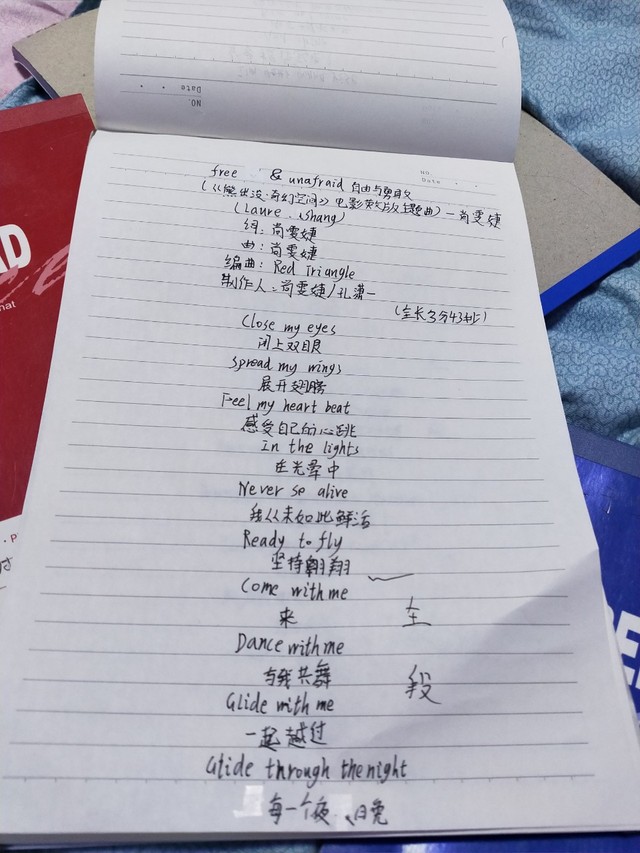 NO.
Date
free & unafraid 自由与勇敢
(《熊出没·奇幻空间》电影英文版主题曲) - 尚雯婕
(Laure . Shang)
词: 尚雯婕
曲: 尚雯婕
编曲: Red Triangle
制作人: 尚雯婕/孔潇一
(全长3分43秒)
Close my eyes
闭上双眼
Spread my wings
展开翅膀
Feel my heart beat
感受自己的心跳
In the lights
在光晕中
Never so alive
我从未如此鲜活
Ready to fly
坚持翱翔
Come with me
来
Dance with me
与我共舞
Glide with me
一起越过
Glide through the night
每一个夜、晚
主
段